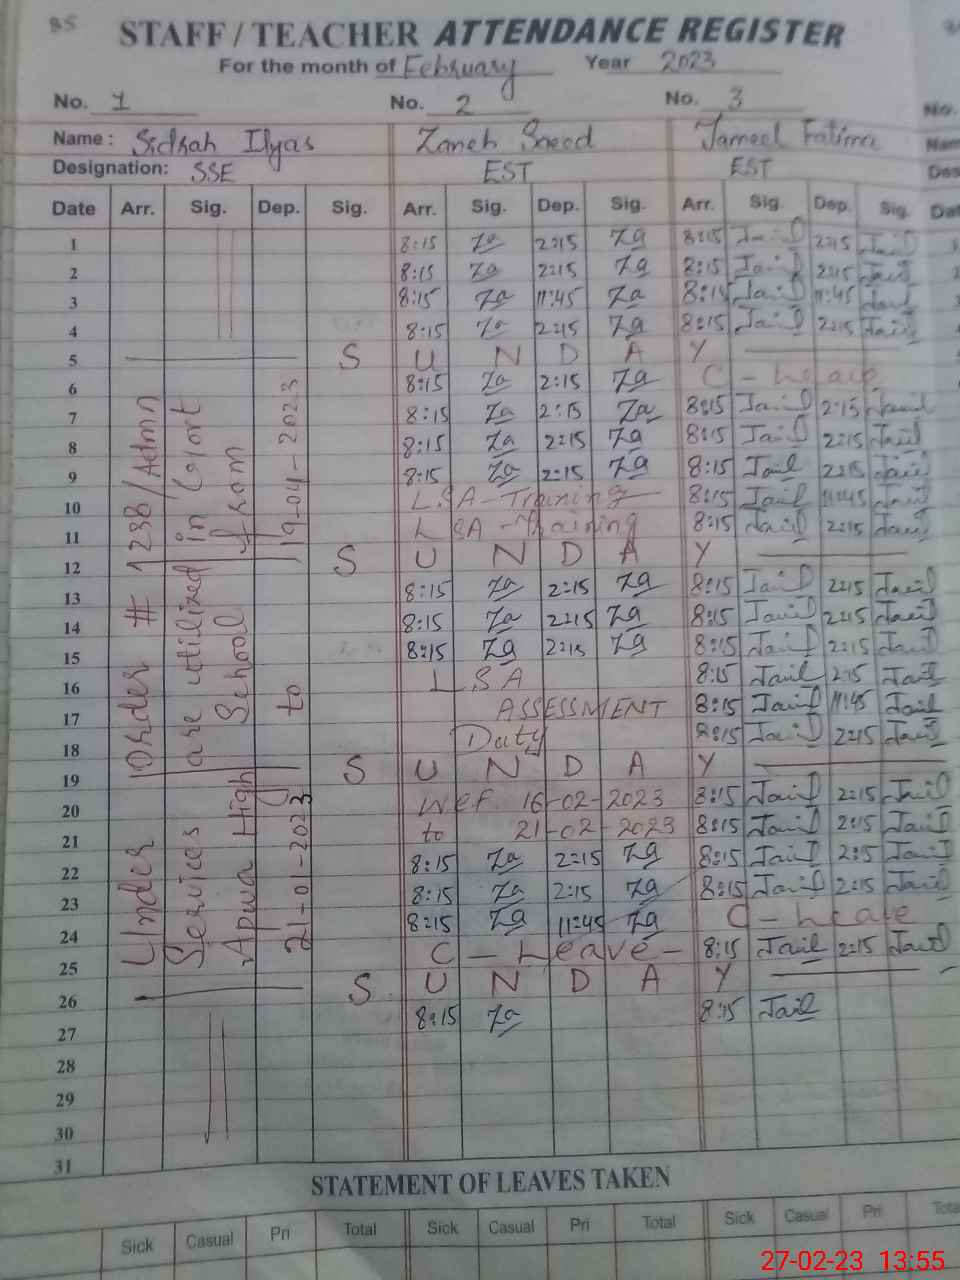 85
STAFF / TEACHER ATTENDANCE REGISTER
For the month of February Year 2023
No. 1 No. 2 No. 3 No.
Name : Sidrah Ilyas Zaneb Saeed Jameel Fatima
Designation: SSE EST EST
Date Arr. Sig. Dep. Sig. Arr. Sig. Dep. Sig. Arr. Sig. Dep. Sig.
1 8:15 Za 2:15 Za 8:15 2:15
2 8:15 Za 2:15 Za 8:15 2:15
3 8:15 Za 11:45 Za 8:15 11:45
4 8:15 Za 2:15 Za 8:15 2:15
5 S U N D A Y
6 8:15 Za 2:15 Za C - Leave
7 8:15 Za 2:15 Za 8:15 2:15
8 8:15 Za 2:15 Za 8:15 2:15
9 8:15 Za 2:15 Za 8:15 2:15
10 LSA-Training 8:15 11:45
11 LSA-Training 8:15 2:15
12 S U N D A Y
13 8:15 Za 2:15 Za 8:15 2:15
14 8:15 Za 2:15 Za 8:15 2:15
15 8:15 Za 2:15 Za 8:15 2:15
16 LSA 8:15 2:15
17 ASSESSMENT 8:15 11:45
18 Duty 8:15 2:15
19 S U N D A Y
20 wef 16-02-2023 8:15 2:15
21 to 21-02-2023 8:15 2:15
22 8:15 Za 2:15 Za 8:15 2:15
23 8:15 Za 2:15 Za 8:15 2:15
24 8:15 Za 11:45 Za C - Leave
25 C - Leave - 8:15 2:15
26 S U N D A Y
27 8:15 Za 8:15
28
29
30
31
Under Order # 1238/Admn
Services are utilized in
Apwa High School from
21-01-2023 to 19-04-2023
STATEMENT OF LEAVES TAKEN
Sick Casual Pri Total Sick Casual Pri Total Sick Casual Pri
27-02-23 13:55